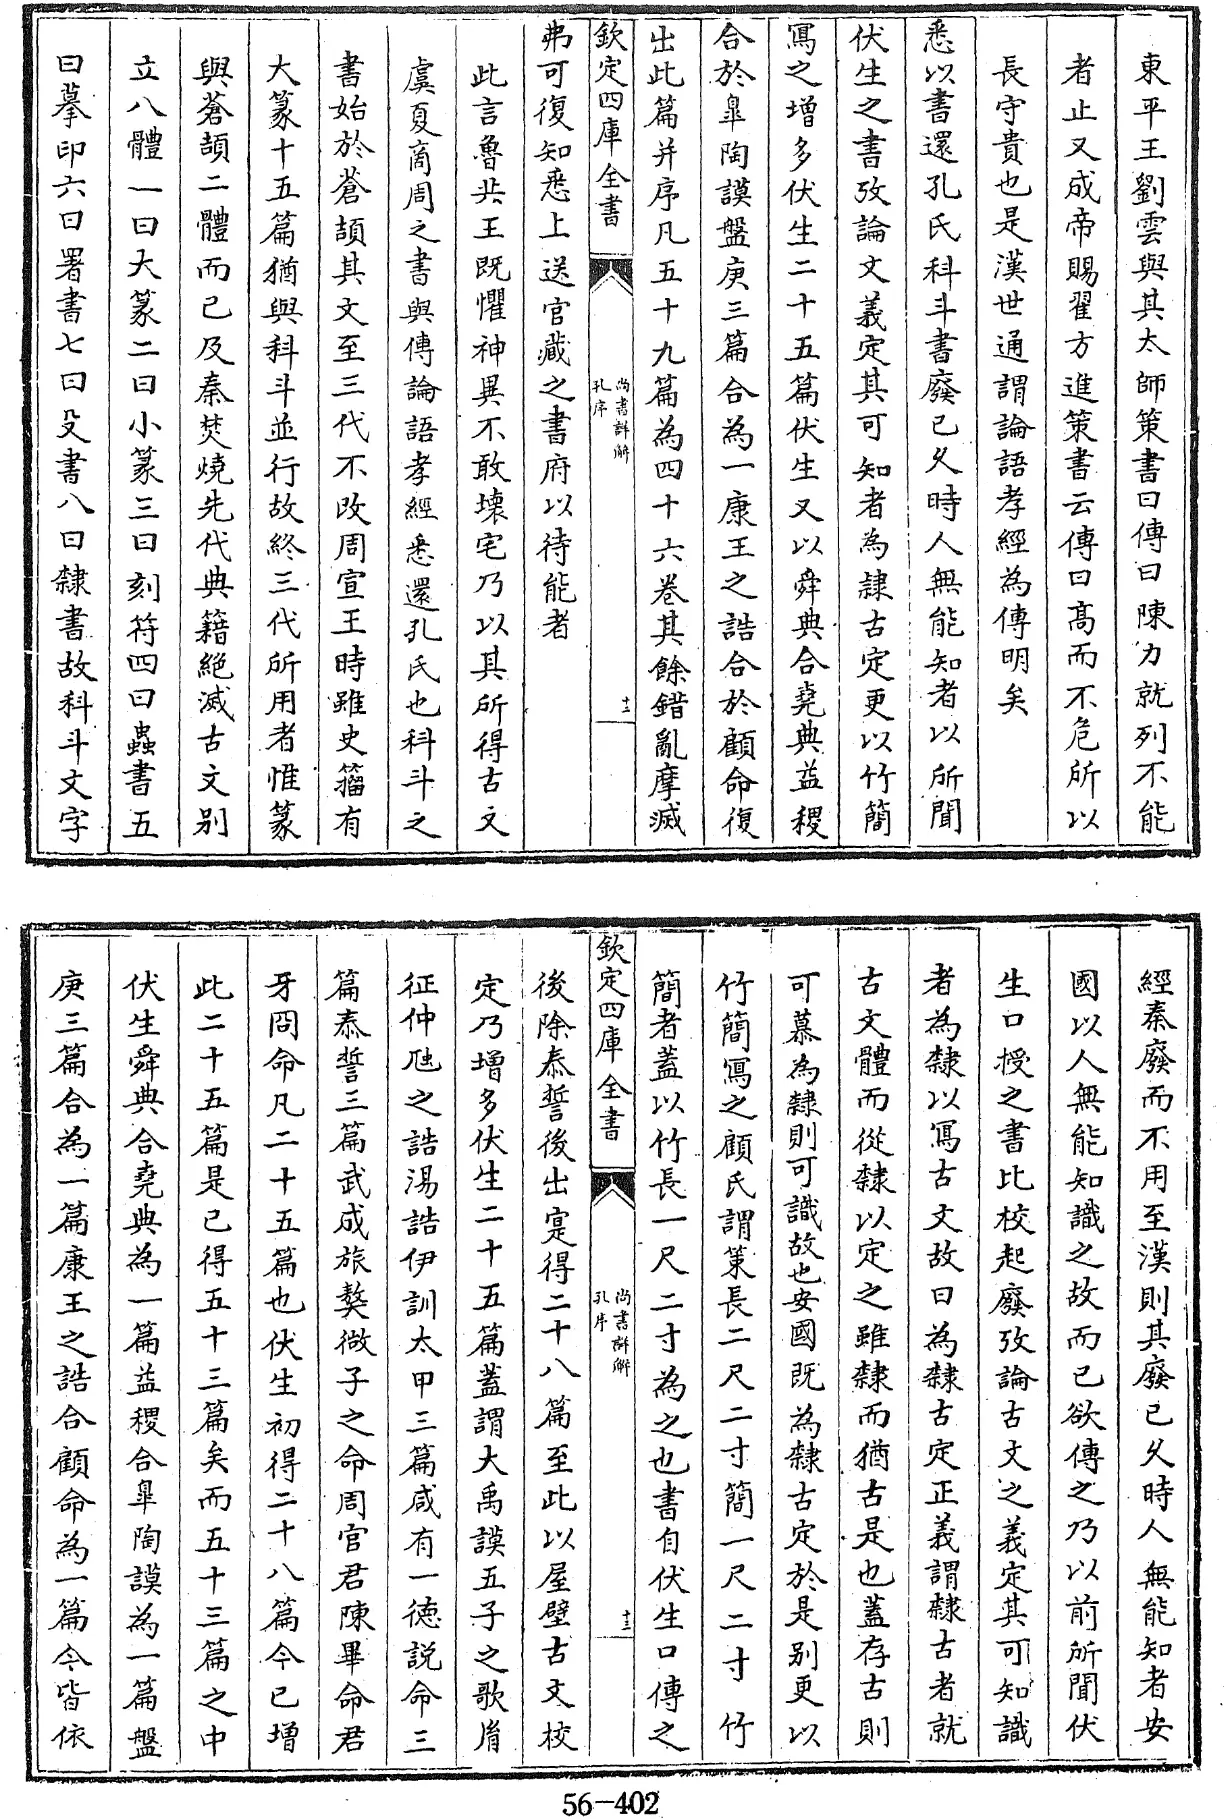 東平王劉雲與其太師策書曰傳曰陳力就列不能
者止又成帝賜翟方進策書云傳曰髙而不危所以
長守貴也是漢世通謂論語孝經為傳明矣
悉以書還孔氏科斗書廢已乆時人無能知者以所聞
伏生之書攷論文義定其可知者為隷古定更以竹簡
寫之增多伏生二十五篇伏生又以舜典合堯典益稷
合於臯陶謨盤庚三篇合為一康王之誥合於顧命復
出此篇并序凡五十九篇為四十六卷其餘錯亂摩滅
欽定四庫全書
尚書詳解
孔序
十二
弗可復知悉上送官藏之書府以待能者
此言魯共王既懼神異不敢壊宅乃以其所得古文
虞夏商周之書與傳論語孝經悉還孔氏也科斗之
書始於蒼頡其文至三代不改周宣王時雖史籀有
大篆十五篇猶與科斗並行故終三代所用者惟篆
與蒼頡二體而已及秦焚燒先代典籍絶滅古文别
立八體一曰大篆二曰小篆三曰刻符四曰蟲書五
曰摹印六曰署書七曰殳書八曰隷書故科斗文字
經秦廢而不用至漢則其廢已乆時人無能知者安
國以人無能知識之故而已欲傳之乃以前所聞伏
生口授之書比校起廢攷論古文之義定其可知識
者為隷以寫古文故曰為隷古定正義謂隷古者就
古文體而從隷以定之雖隷而猶古是也蓋存古則
可慕為隷則可識故也安國既為隷古定於是别更以
竹簡寫之顧氏謂策長二尺二寸簡一尺二寸竹
簡者蓋以竹長一尺二寸為之也書自伏生口傳之
欽定四庫全書
尚書詳解
孔序
十三
後除泰誓後出寔得二十八篇至此以屋壁古文校
定乃增多伏生二十五篇蓋謂大禹謨五子之歌胤
征仲虺之誥湯誥伊訓太甲三篇咸有一德説命三
篇泰誓三篇武成旅獒微子之命周官君陳畢命君
牙冏命凡二十五篇也伏生初得二十八篇今已增
此二十五篇是已得五十三篇矣而五十三篇之中
伏生舜典合堯典為一篇益稷合臯陶謨為一篇盤
庚三篇合為一篇康王之誥合顧命為一篇今皆依
56-402